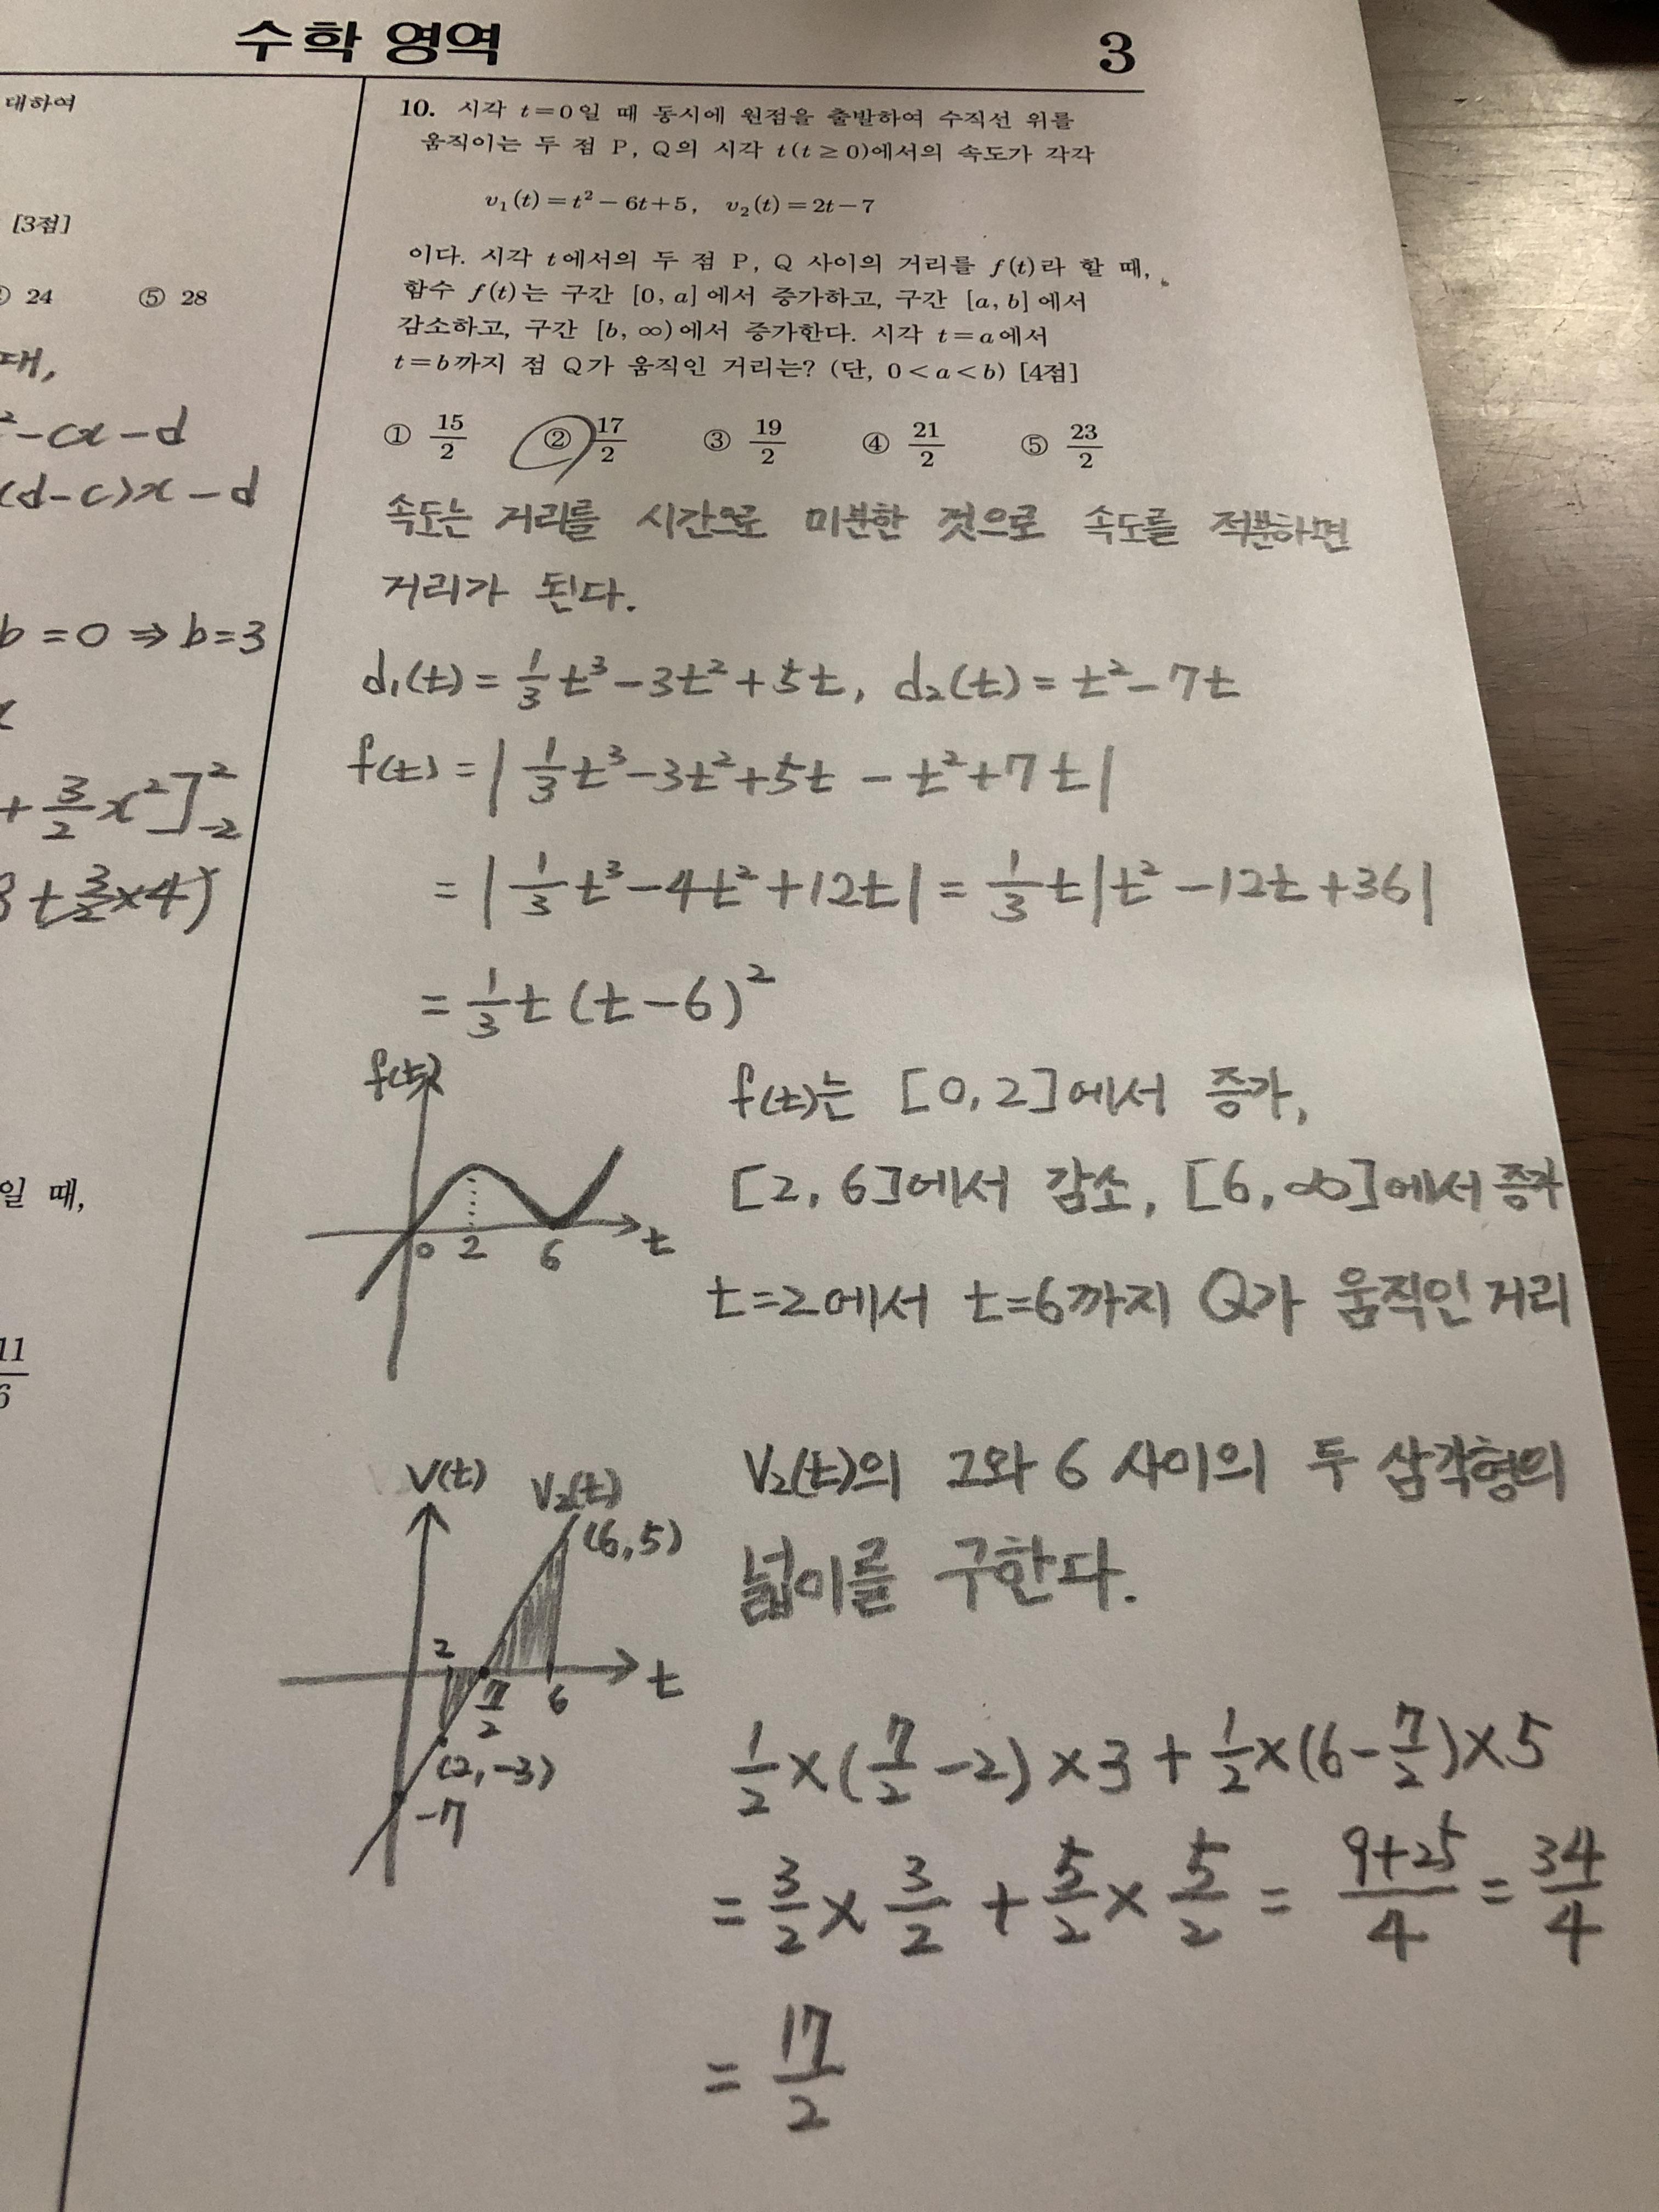 수학 영역
3
대하여
[3점]
24 ⑤ 28
대,
²-cx-d
(d-c)x-d
b=0⇒b=3
x
+ 3/2 x²]²₋₂
+ 3/2×4)
일 때,
11/6
10. 시각 t=0일 때 동시에 원점을 출발하여 수직선 위를
움직이는 두 점 P, Q의 시각 t(t≥0)에서의 속도가 각각
v₁(t)=t²-6t+5, v₂(t)=2t-7
이다. 시각 t에서의 두 점 P, Q 사이의 거리를 f(t)라 할 때,
함수 f(t)는 구간 [0, a]에서 증가하고, 구간 [a, b]에서
감소하고, 구간 [b, ∞)에서 증가한다. 시각 t=a에서
t=b까지 점 Q가 움직인 거리는? (단, 0<a<b) [4점]
① 15/2 ② 17/2 ③ 19/2 ④ 21/2 ⑤ 23/2
속도는 거리를 시간으로 미분한 것으로 속도를 적분하면
거리가 된다.
d₁(t)=1/3t³-3t²+5t, d₂(t)=t²-7t
f(t)=|1/3t³-3t²+5t-t²+7t|
=|1/3t³-4t²+12t|=1/3t|t²-12t+36|
=1/3t(t-6)²
f(t)
0 2 6 t
f(t)는 [0,2]에서 증가,
[2,6]에서 감소, [6,∞]에서 증가
t=2에서 t=6까지 Q가 움직인 거리
V(t) V₂(t)
(6,5)
2 7/2 6 t
(2,-3)
-7
V₂(t)의 2와 6 사이의 두 삼각형의
넓이를 구한다.
1/2×(7/2-2)×3+1/2×(6-7/2)×5
=3/2×3/2+5/2×5/2=9+25/4=34/4
=17/2